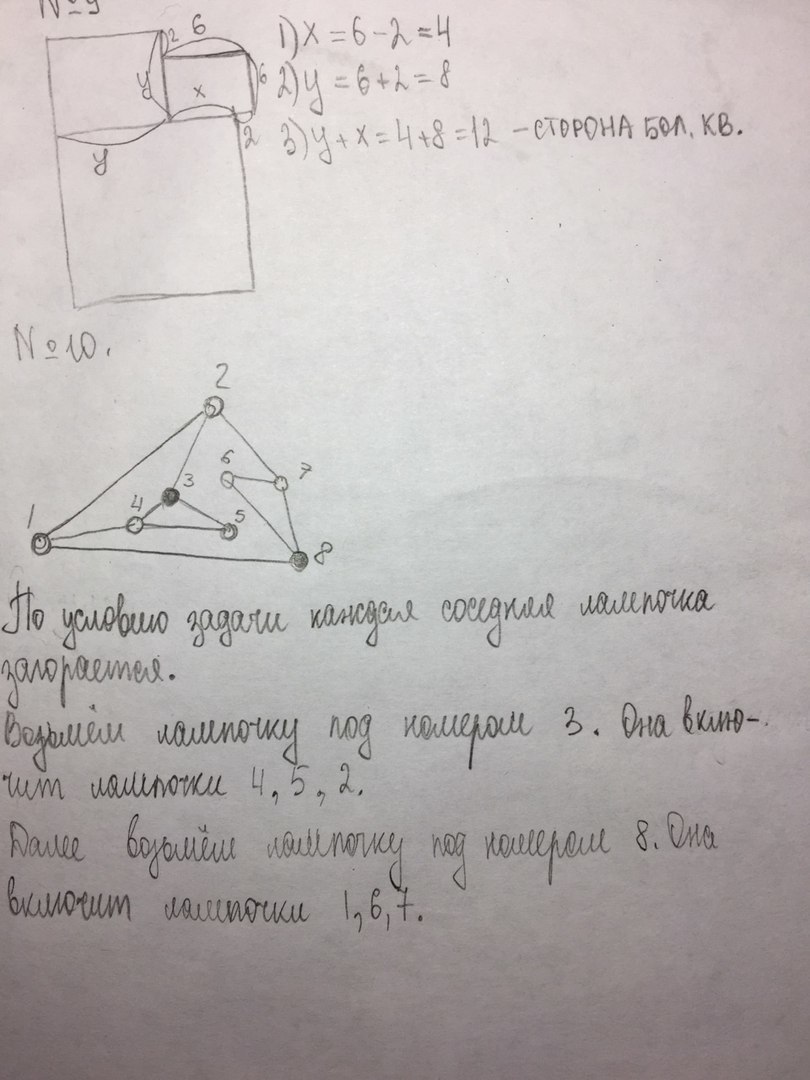 №9
2 6
y x 6
y 2
1) x = 6 - 2 = 4
2) y = 6 + 2 = 8
3) y + x = 4 + 8 = 12 - СТОРОНА БОЛ. КВ.
№10.
2
6 7
3
4
1 5
8
По условию задачи каждая соседняя лампочка
загорается.
Возьмём лампочку под номером 3. Она вклю-
чит лампочки 4, 5, 2.
Далее возьмём лампочку под номером 8. Она
включит лампочки 1, 6, 7.